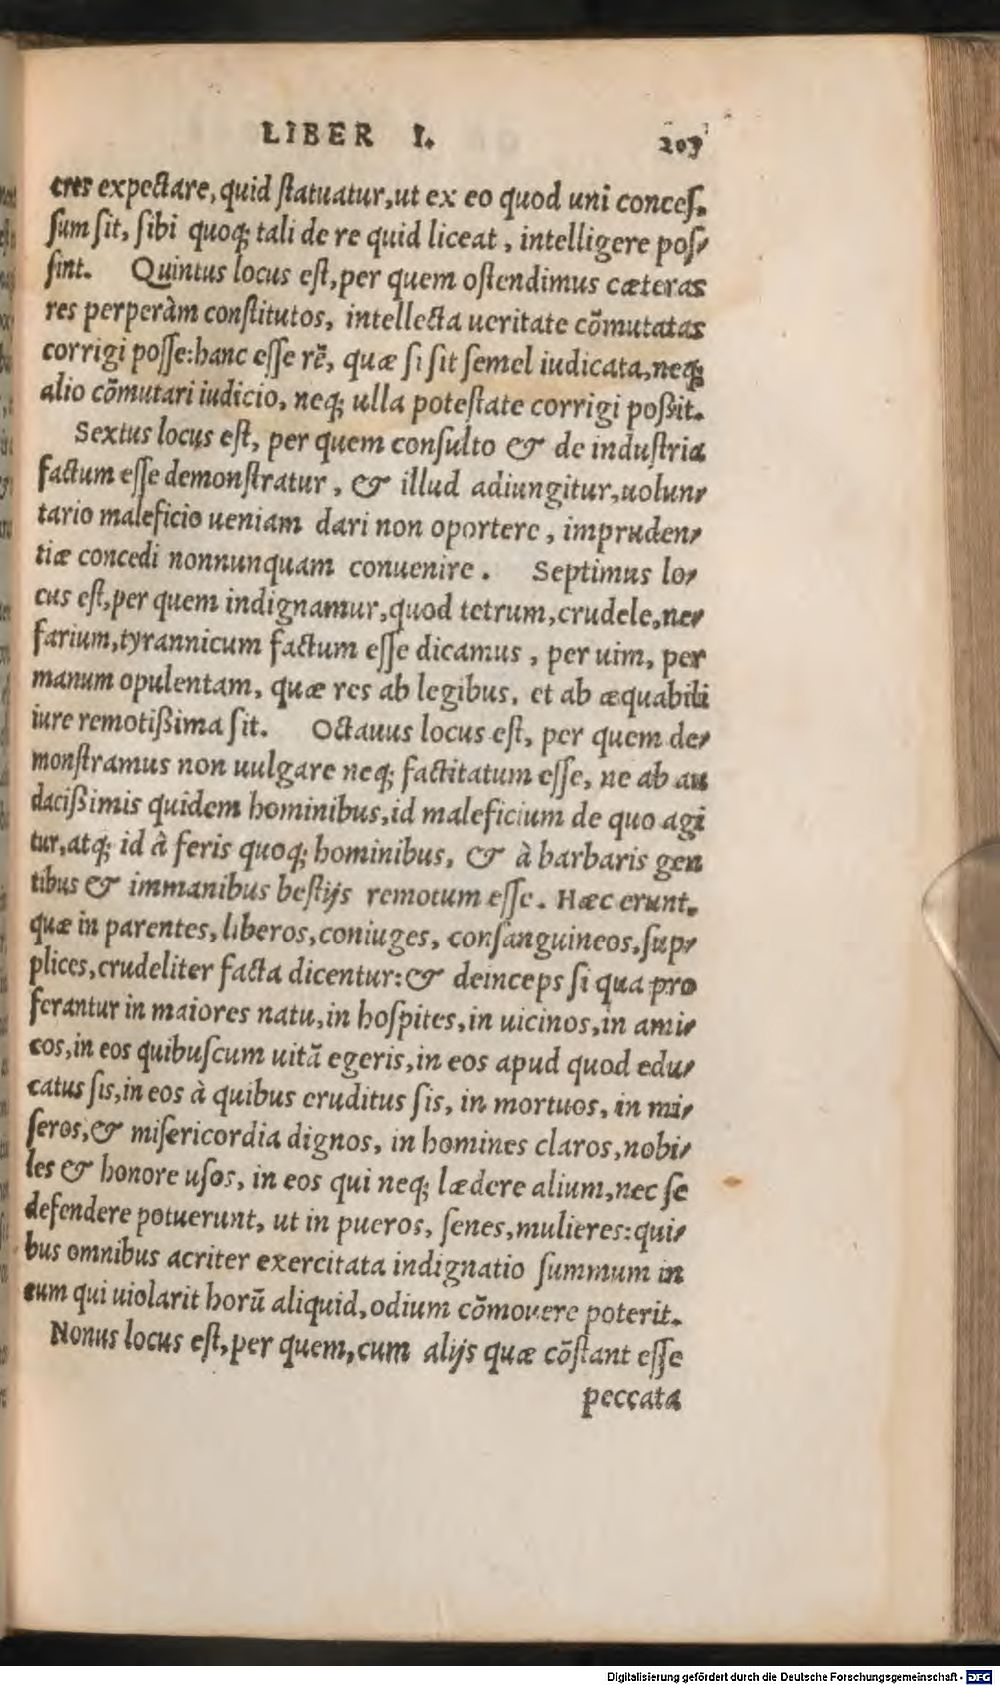 LIBER I. 203
cres expectare, quid ſtatuatur, ut ex eo quod uni conceſ.
ſum ſit, ſibi quoq; tali de re quid liceat, intelligere poſ-
ſint. Quintus locus eſt, per quem oſtendimus cæteras
res perperàm conſtitutos, intellecta ueritate cõmutatas
corrigi poſſe: hanc eſſe rẽ, quæ ſi ſit ſemel iudicata, neq;
alio cõmutari iudicio, neq; ulla poteſtate corrigi poßit.
Sextus locus eſt, per quem conſulto & de induſtria
factum eſſe demonſtratur, & illud adiungitur, uolun-
tario maleficio ueniam dari non oportere, impruden-
tiæ concedi nonnunquam conuenire. Septimus lo-
cus eſt, per quem indignamur, quod tetrum, crudele, ne-
farium, tyrannicum factum eſſe dicamus, per uim, per
manum opulentam, quæ res ab legibus, et ab æquabili
iure remotißima ſit. Octauus locus eſt, per quem de-
monſtramus non uulgare neq; factitatum eſſe, ne ab au
dacißimis quidem hominibus, id maleficium de quo agi
tur, atq; id à feris quoq; hominibus, & à barbaris gen
tibus & immanibus beſtijs remotum eſſe. Hæc erunt.
quæ in parentes, liberos, coniuges, conſanguineos, ſup-
plices, crudeliter facta dicentur: & deinceps ſi qua pro
ferantur in maiores natu, in hoſpites, in uicinos, in ami-
cos, in eos quibuſcum uitã egeris, in eos apud quod edu-
catus ſis, in eos à quibus eruditus ſis, in mortuos, in mi-
ſeros, & miſericordia dignos, in homines claros, nobi-
les & honore uſos, in eos qui neq; lædere alium, nec ſe
defendere potuerunt, ut in pueros, ſenes, mulieres: qui-
bus omnibus acriter exercitata indignatio ſummum in
eum qui uiolarit horũ aliquid, odium cõmouere poterit.
Nonus locus eſt, per quem, cum alijs quæ cõſtant eſſe
peccata
Digitalisierung gefördert durch die Deutsche Forschungsgemeinschaft - DFG